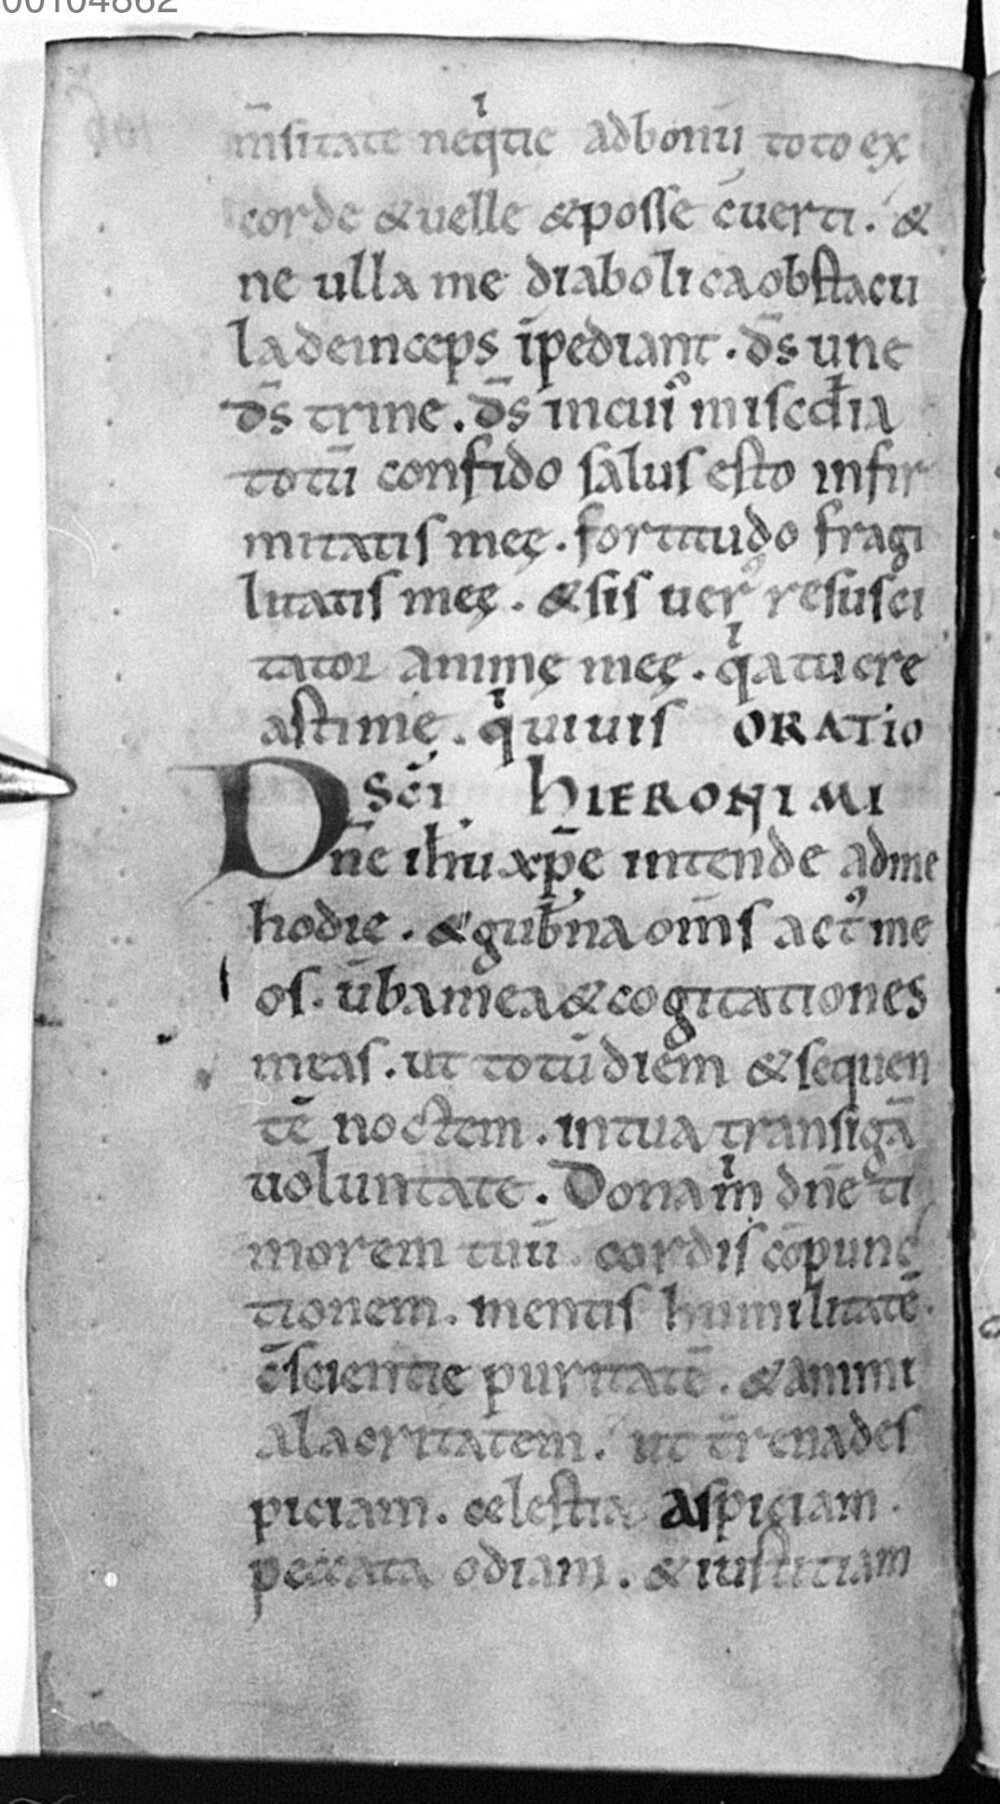 00104862
m̄sitate neqͥtie ad bonū toto ex
corde & uelle & posse ēuerti. &
ne ulla me diabolica obstacu
la deinceps īpediant. d̄s une
d̄s trine. d̄s in cuiꝰ misc̄dia
totū confido salus esto infir
mitatis meę. fortitudo fragi
litatis meę. & sis uerꝰ resusci
tator animę meę. qͥa tu cre
asti me. qͥ uiuis ORATIO
SC̄I HIERONIMI
Dn̄e ih̄u xp̄e intende ad me
hodie. & gub̄na om̄s actꝰ me
os. ūba mea & cogitationes
meas. ut totū diem & sequen
tē noctem. in tua transigā
uoluntate. Dona mͥ dn̄e ti
morem tuū. cordis cōpunc
tionem. mentis humilitatē.
c̄scientie puritatē. & animi
alacritatem. ut t̄rena des
piciam. celestia aspiciam.
peccata odiam. & iustitiam